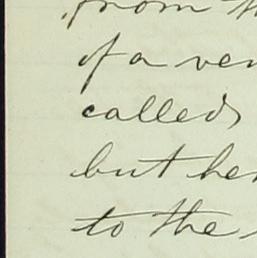 from th
of a ver
called
but her
to the